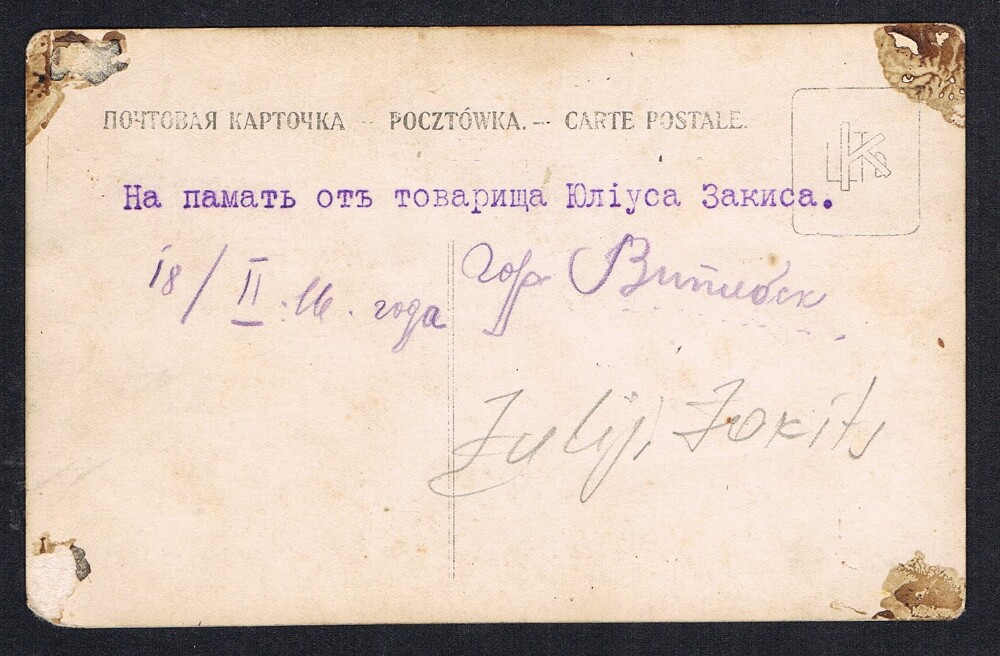 ПОЧТОВАЯ КАРТОЧКА – POCZTÓWKA. – CARTE POSTALE.
На памать отъ товарища Юліуса Закиса.
18/II.16. года
гор Витебск